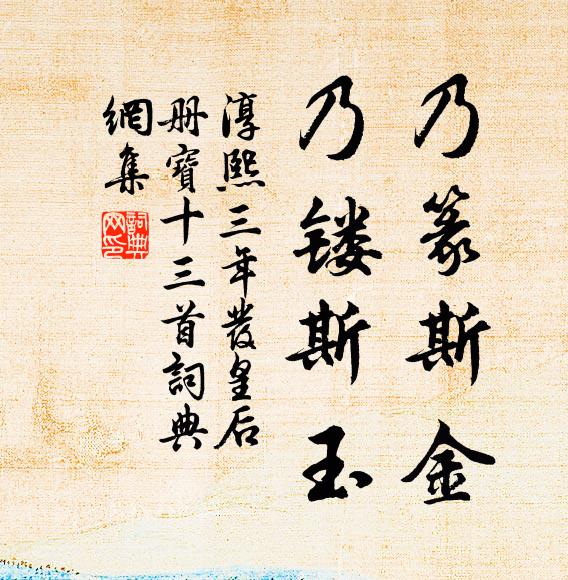 乃篆斯金
乃镂斯玉
淳熙三年發皇后
册寶十三首詞典
網集
詞典
网印